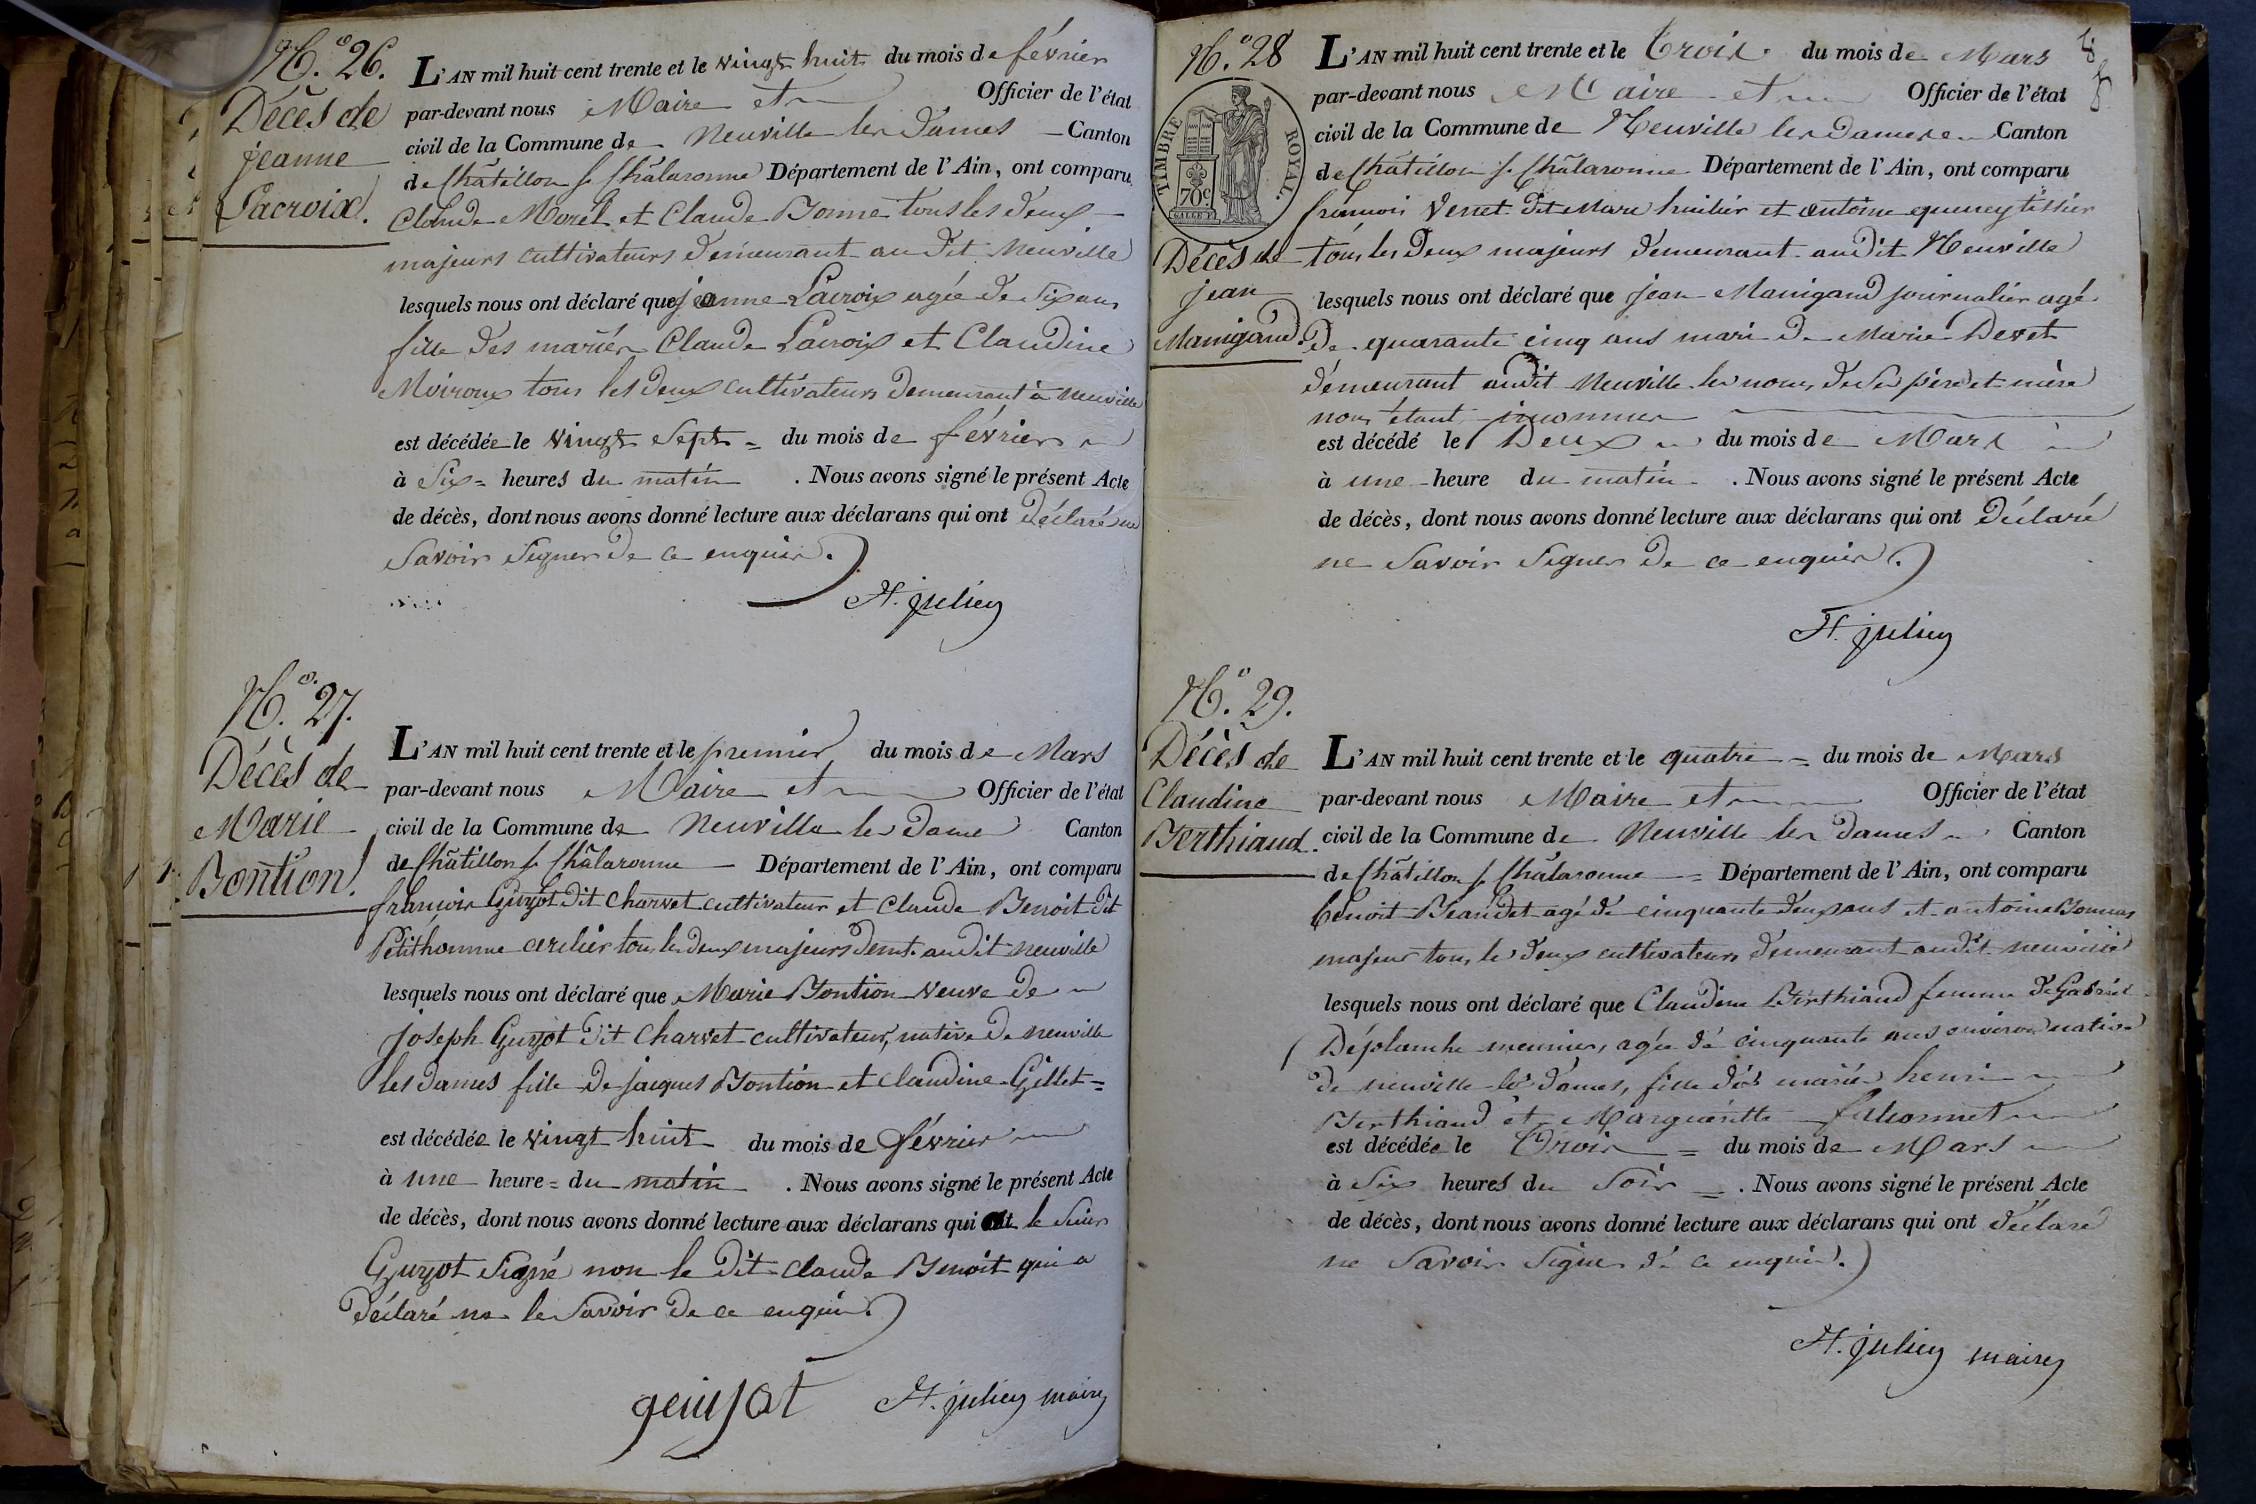 N.º 26.
Décès de
jeanne
Lacroix.
L'AN mil huit cent trente et le vingt huit du mois de février
par-devant nous Maire et Officier de l'état
civil de la Commune de Neuville les Dames Canton
de Châtillon s. Châlaronne Département de l'Ain, ont comparu
Claude Morel et Claude Bonne tous les deux
majeurs cultivateurs demeurant au dit Neuville
lesquels nous ont déclaré que jeanne Lacroix agée de Six ans
fille des mariés Claude Lacroix et Claudine
Moiroux tous les deux cultivateurs demeurant à Neuville
est décédée le vingt Sept = du mois de février
à Six = heures du matin . Nous avons signé le présent Acte
de décès, dont nous avons donné lecture aux déclarans qui ont déclaré ne
Savoir Signer de ce enquis.
H. julien
N.º 27.
Décès de
Marie
Bontion.
L'AN mil huit cent trente et le premier du mois de Mars
par-devant nous Maire et Officier de l'état
civil de la Commune de Neuville les Dame Canton
de Châtillon s. Châlaronne Département de l'Ain, ont comparu
francois Guyot dit Charvet cultivateur et Claude Benoit dit
Petithomme tous les deux majeurs demt. au dit neuville
lesquels nous ont déclaré que Marie Bontion Veuve de
joseph Guyot dit Charvet cultivateur, native de neuville
les dames fille de jacques Bontion et claudine Gillet =
est décédée le vingt huit du mois de février
à une heure = du matin . Nous avons signé le présent Acte
de décès, dont nous avons donné lecture aux déclarans qui ont le Sieur
Guyot Signé non le dit claude Benoit qui a
déclaré ne le Savoir de ce enquis.
geuyot H. julien maire
N.º 28
TIMBRE ROYAL.
70c.
Décès de
jean
Manigand.
L'AN mil huit cent trente et le trois du mois de Mars
par-devant nous Maire et Officier de l'état
civil de la Commune de Neuville les Dames Canton
de Châtillon s. Châlaronne Département de l'Ain, ont comparu
francois Venet dit Mare huilier et antoine tissier
tous les deux majeurs demeurant au dit Neuville
lesquels nous ont déclaré que jean Manigand journalier agé
de quarante cinq ans mari de Marie Devet
demeurant audit Neuville les noms de Ses père et mère
nous étant inconnus
est décédé le Deux du mois de Mars
à une heure du matin . Nous avons signé le présent Acte
de décès, dont nous avons donné lecture aux déclarans qui ont déclaré
ne Savoir Signer de ce enquis.
H. julien
N.º 29.
Décès de
Claudine
Berthiaud.
L'AN mil huit cent trente et le quatre = du mois de Mars
par-devant nous Maire et Officier de l'état
civil de la Commune de Neuville les Dames Canton
de Châtillon s. Châlaronne = Département de l'Ain, ont comparu
benoit Beaudet agé de cinquante deux ans et antoine
majeur tous les deux cultivateurs demeurant audit neuville
lesquels nous ont déclaré que Claudine Berthiaud femme de Gabriel
Déplanche meunier, agée de cinquante ans environ native
de neuville les dames, fille des mariés henri
Berthiaud et Margueritte
est décédée le trois = du mois de Mars
à Six heures du Soir = . Nous avons signé le présent Acte
de décès, dont nous avons donné lecture aux déclarans qui ont déclaré
ne Savoir Signer de ce enquis.
H. julien maire